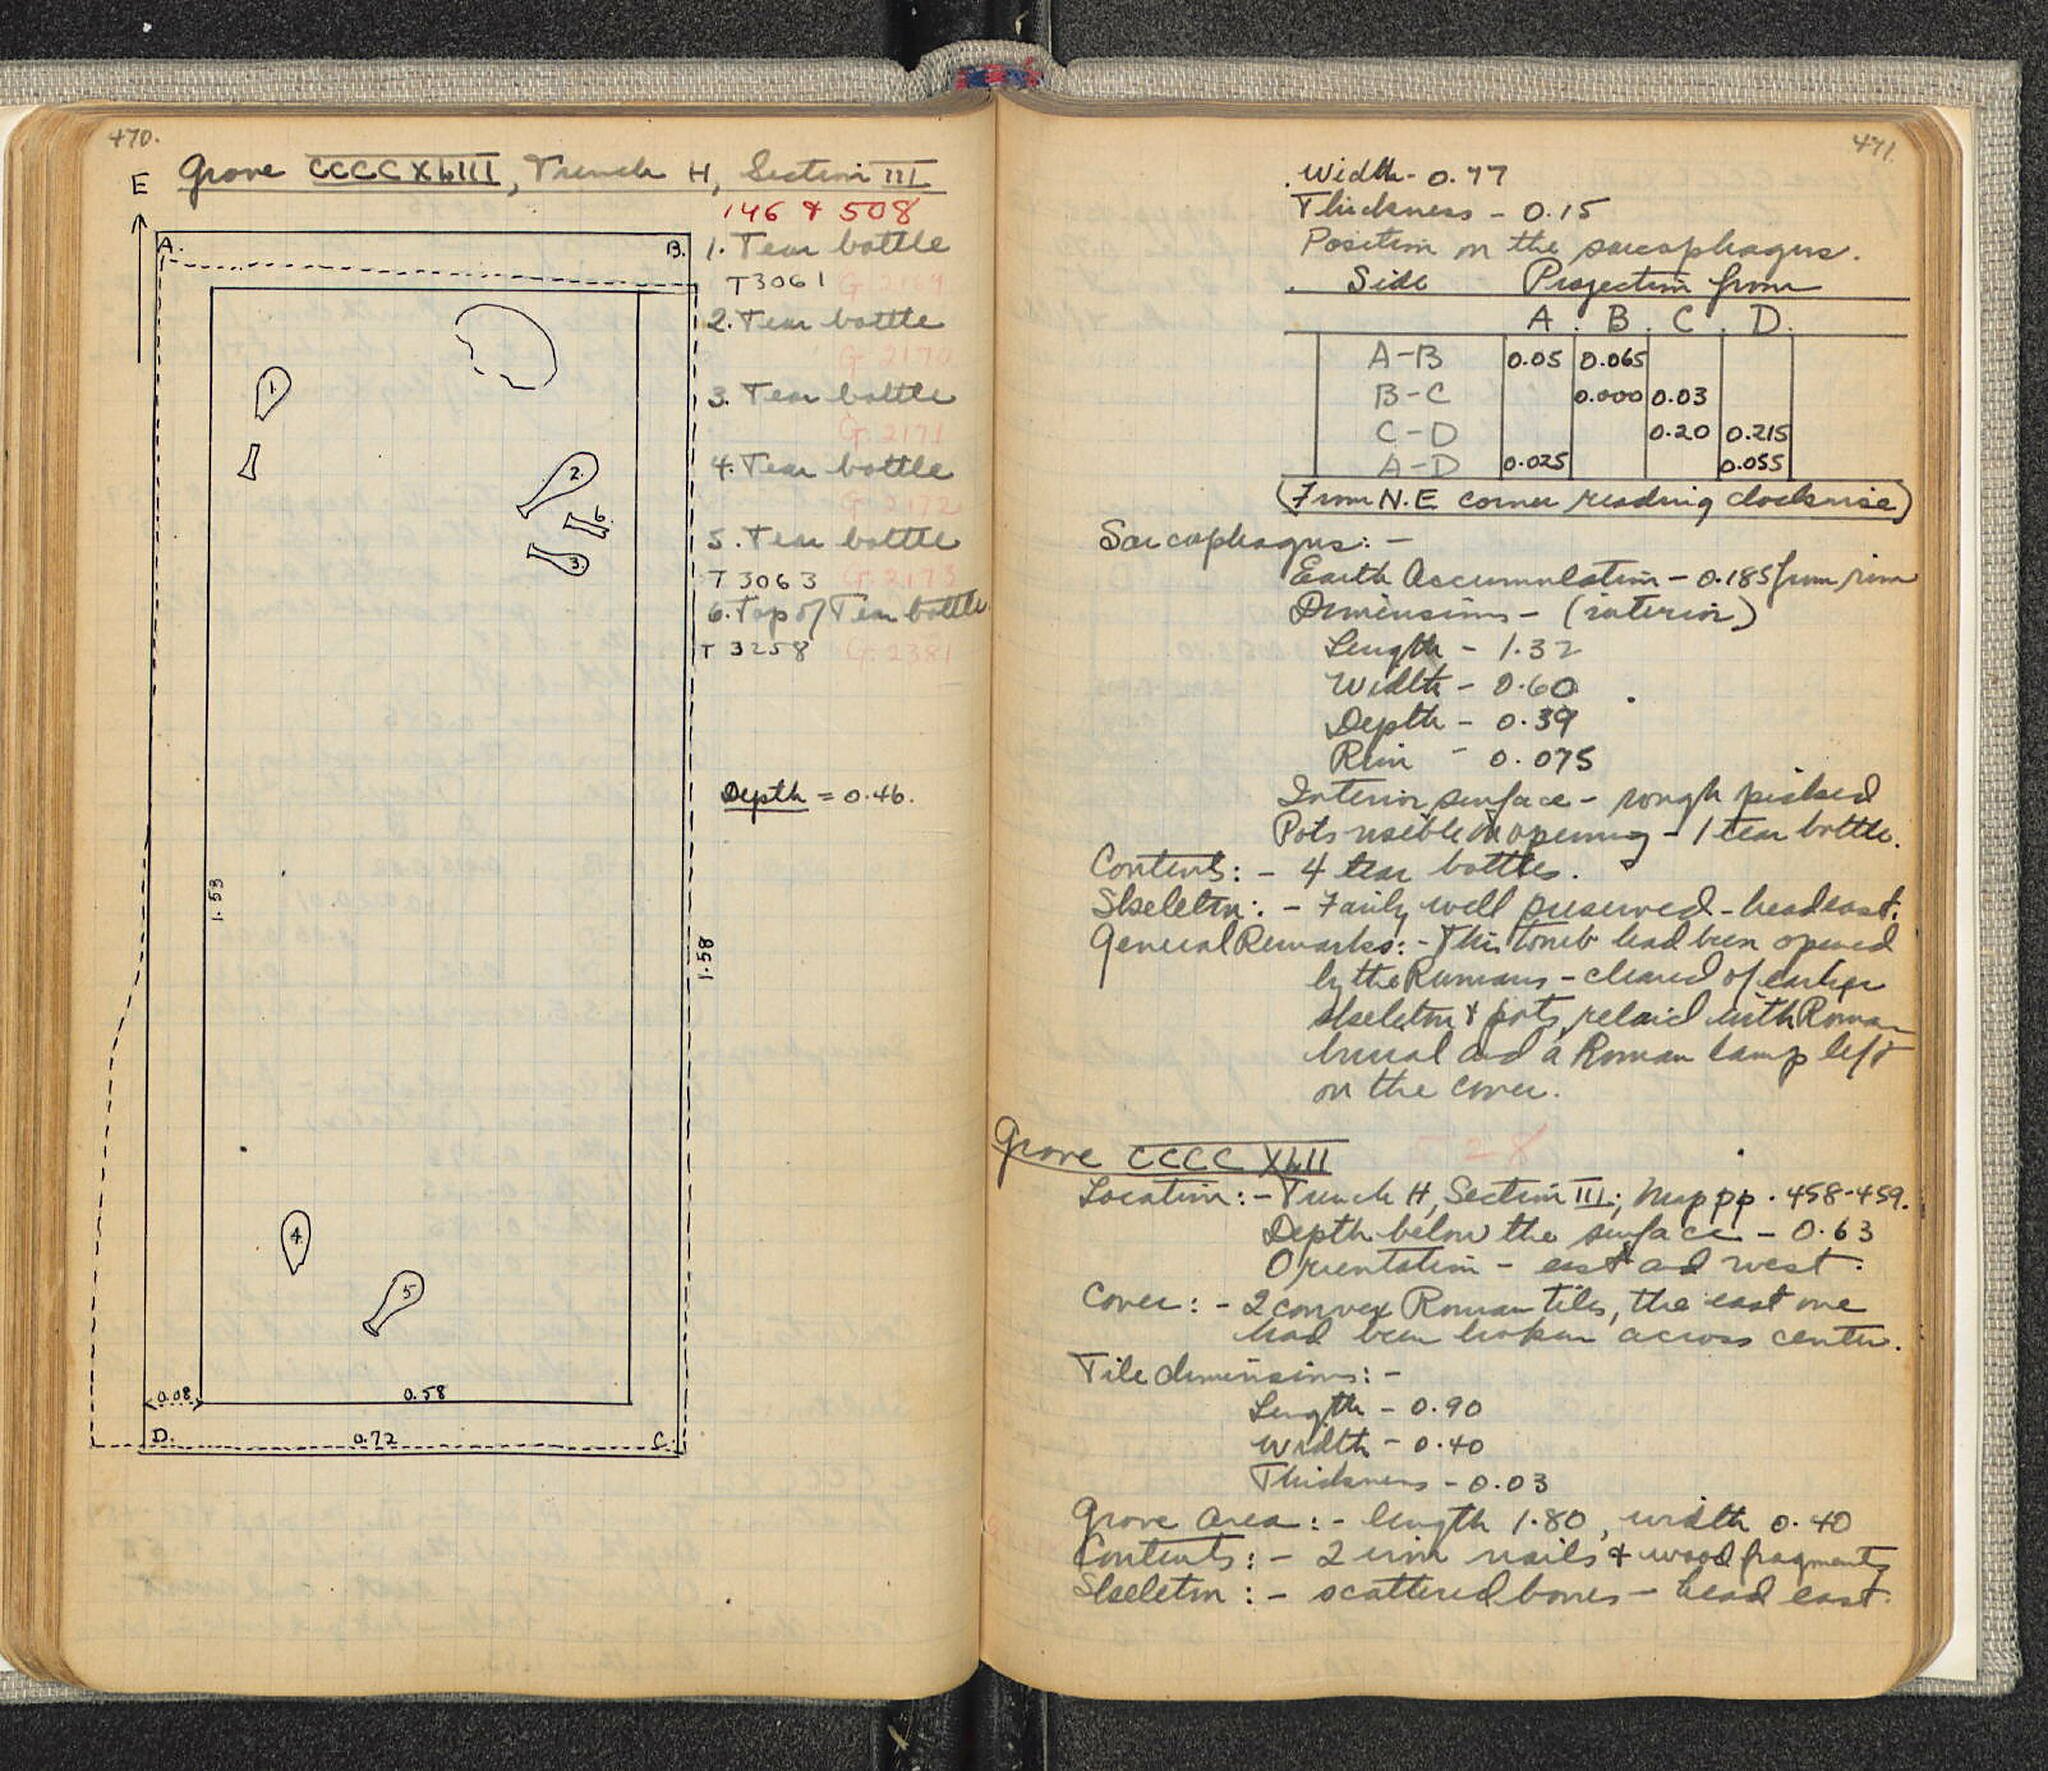 470.
Grave CCCCXLIII, Trench H, Section III
E
146 & 508
A.
B.
1. Tear bottle
T 3061 G 2169
2. Tear bottle
G 2170
3. Tear bottle
G 2171
4. Tear bottle
G 2172
5. Tear bottle
T 3063 G 2173
6. Top of Tear bottle
T 3258 G 2381
1
2.
6.
3.
Depth = 0.46.
1.53
1.58
4.
5
0.08
0.58
D.
0.72
C.
471.
Width - 0.77
Thickness - 0.15
Position on the sarcophagus.
Side Projection from
A. B. C. D.
A-B 0.05 0.065
B-C 0.000 0.03
C-D 0.20 0.215
A-D 0.025 0.055
(From N.E corner reading clockwise)
Sarcophagus: -
Earth Accumulation - 0.185 from rim
Dimensions - (interior)
Length - 1.32
Width - 0.60
Depth - 0.39
Rim - 0.075
Interior surface - rough picked
Pots visible on opening - 1 tear bottle.
Contents: - 4 tear bottles.
Skeleton: - Fairly well preserved - head east.
General Remarks: - This tomb had been opened
by the Romans - cleared of earlier
skeleton & pots, relaid with Roman
burial and a Roman lamp left
on the cover.
Grave CCCCXLII
Location: - Trench H, Section III; Map pp. 458-459.
Depth below the surface - 0.63
Orientation - east and west.
Cover: - 2 convex Roman tiles, the east one
had been broken across center.
Tile dimensions: -
Length - 0.90
Width - 0.40
Thickness - 0.03
Grave Area: - length 1.80, width 0.40
Contents: - 2 iron nails & wood fragments
Skeleton: - scattered bones - head east.